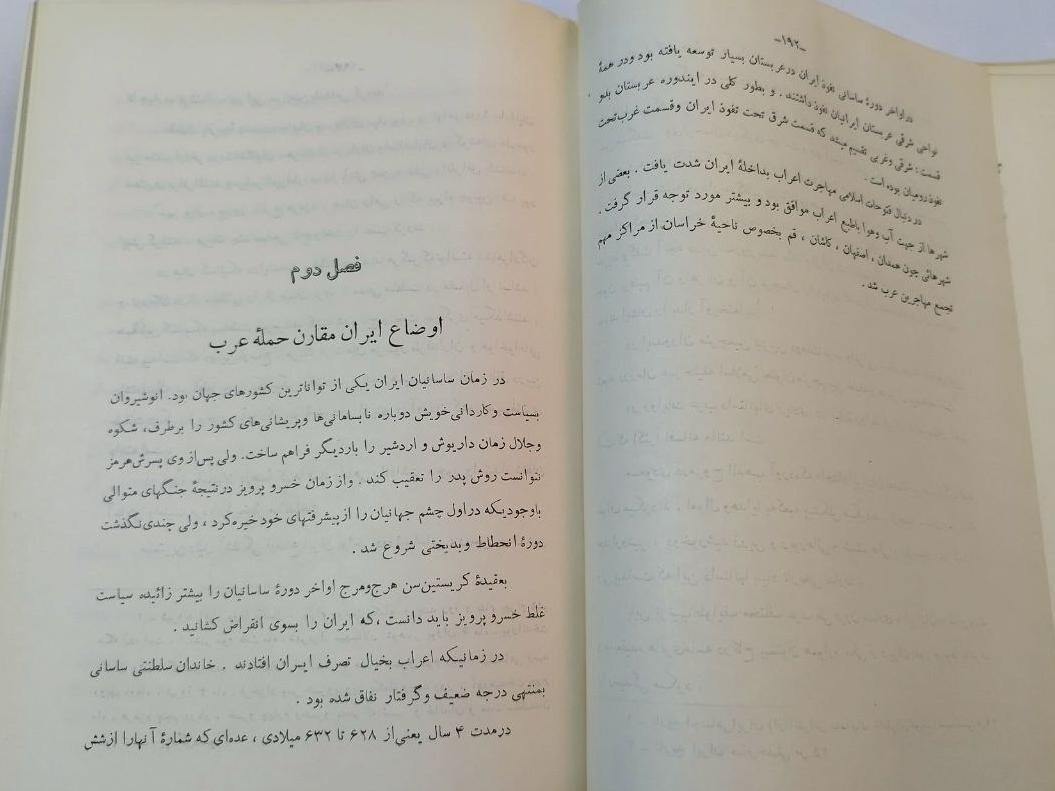 -۱۹۲-
در اواخر دورهٔ ساسانی نفوذ ایران در عربستان بسیار توسعه یافته بود ودر همهٔ
نواحی شرقی عربستان ایرانیان نفوذ داشتند . و بطور کلی در ایندوره عربستان بدو
قسمت : شرقی وغربی تقسیم میشد که قسمت شرقی تحت نفوذ ایران وقسمت غرب تحت
نفوذ رومیان بوده است .
در دنبال فتوحات اسلامی مهاجرت اعراب بداخلهٔ ایران شدت یافت . بعضی از
شهرها از جهت آب وهوا باطبع اعراب موافق بود و بیشتر مورد توجه قرار گرفت .
شهرهائی چون همدان ، اصفهان ، کاشان ، قم بخصوص ناحیهٔ خراسان از مراکز مهم
تجمع مهاجرین عرب شد .
فصل دوم
اوضاع ایران مقارن حملهٔ عرب
در زمان ساسانیان ایران یکی از تواناترین کشورهای جهان بود. انوشیروان
بسیاست وکاردانی خویش دوباره نابسامانی‌ها وپریشانی‌های کشور را برطرف، شکوه
وجلال زمان داریوش و اردشیر را باردیگر فراهم ساخت. ولی پس‌از وی پسرش‌هرمز
نتوانست روش پدر را تعقیب کند . واز زمان خسرو پرویز درنتیجهٔ جنگهای متوالی
باوجودیکه دراول چشم جهانیان را ازپیشرفتهای خود خیره‌کرد ، ولی چندی نگذشت
دورهٔ انحطاط وبدبختی شروع شد .
بعقیدهٔ کریستین‌سن هرج‌ومرج اواخر دورهٔ ساسانیان را بیشتر زائیده سیاست
غلط خسرو پرویز باید دانست ،که ایران را بسوی انقراض کشانید .
در زمانیکه اعراب بخیال تصرف ایران افتادند . خاندان سلطنتی ساسانی
بمنتهی درجه ضعیف وگرفتار نفاق شده بود .
درمدت ۴ سال یعنی‌از ۶۲۸ تا ۶۳۲ میلادی ، عده‌ای که شمارهٔ آنهارا ازشش